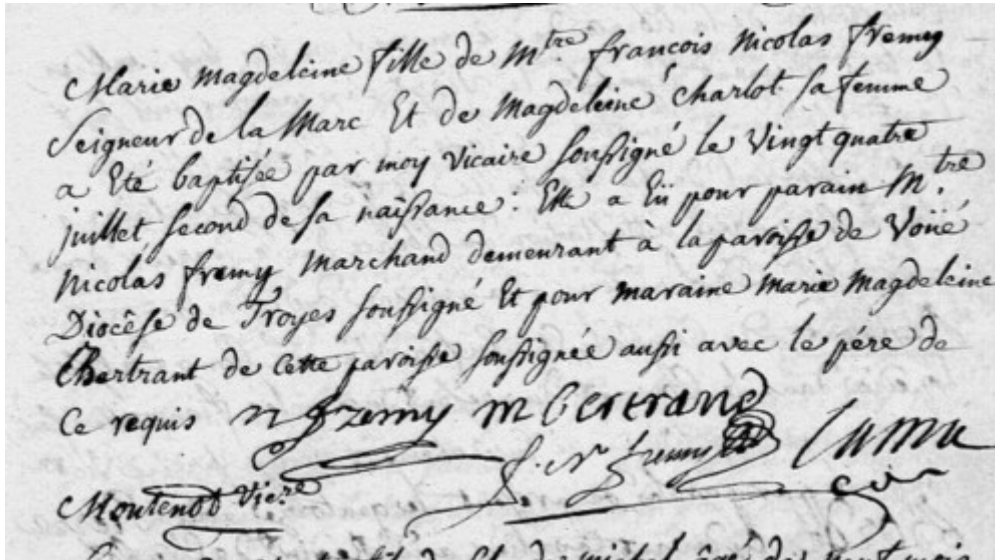 Marie Magdeleine fille de M.tre françois Nicolas fremy
Seigneur de la Marc Et de Magdeleine Charlot sa femme
a Eté baptisée par moy Vicaire soussigné le Vingt quatre
juillet second de sa naissance : Elle a Eü pour parain M.tre
Nicolas fremy Marchand demeurant à la paroisse de Voüé
Diocêse de Troyes soussigné Et pour maraine marie magdeleine
Bertrant de cette paroisse soussignée aussi avec le pére de
Ce requis n fremy m bertrand
f. N fremy
Montenot Vicre